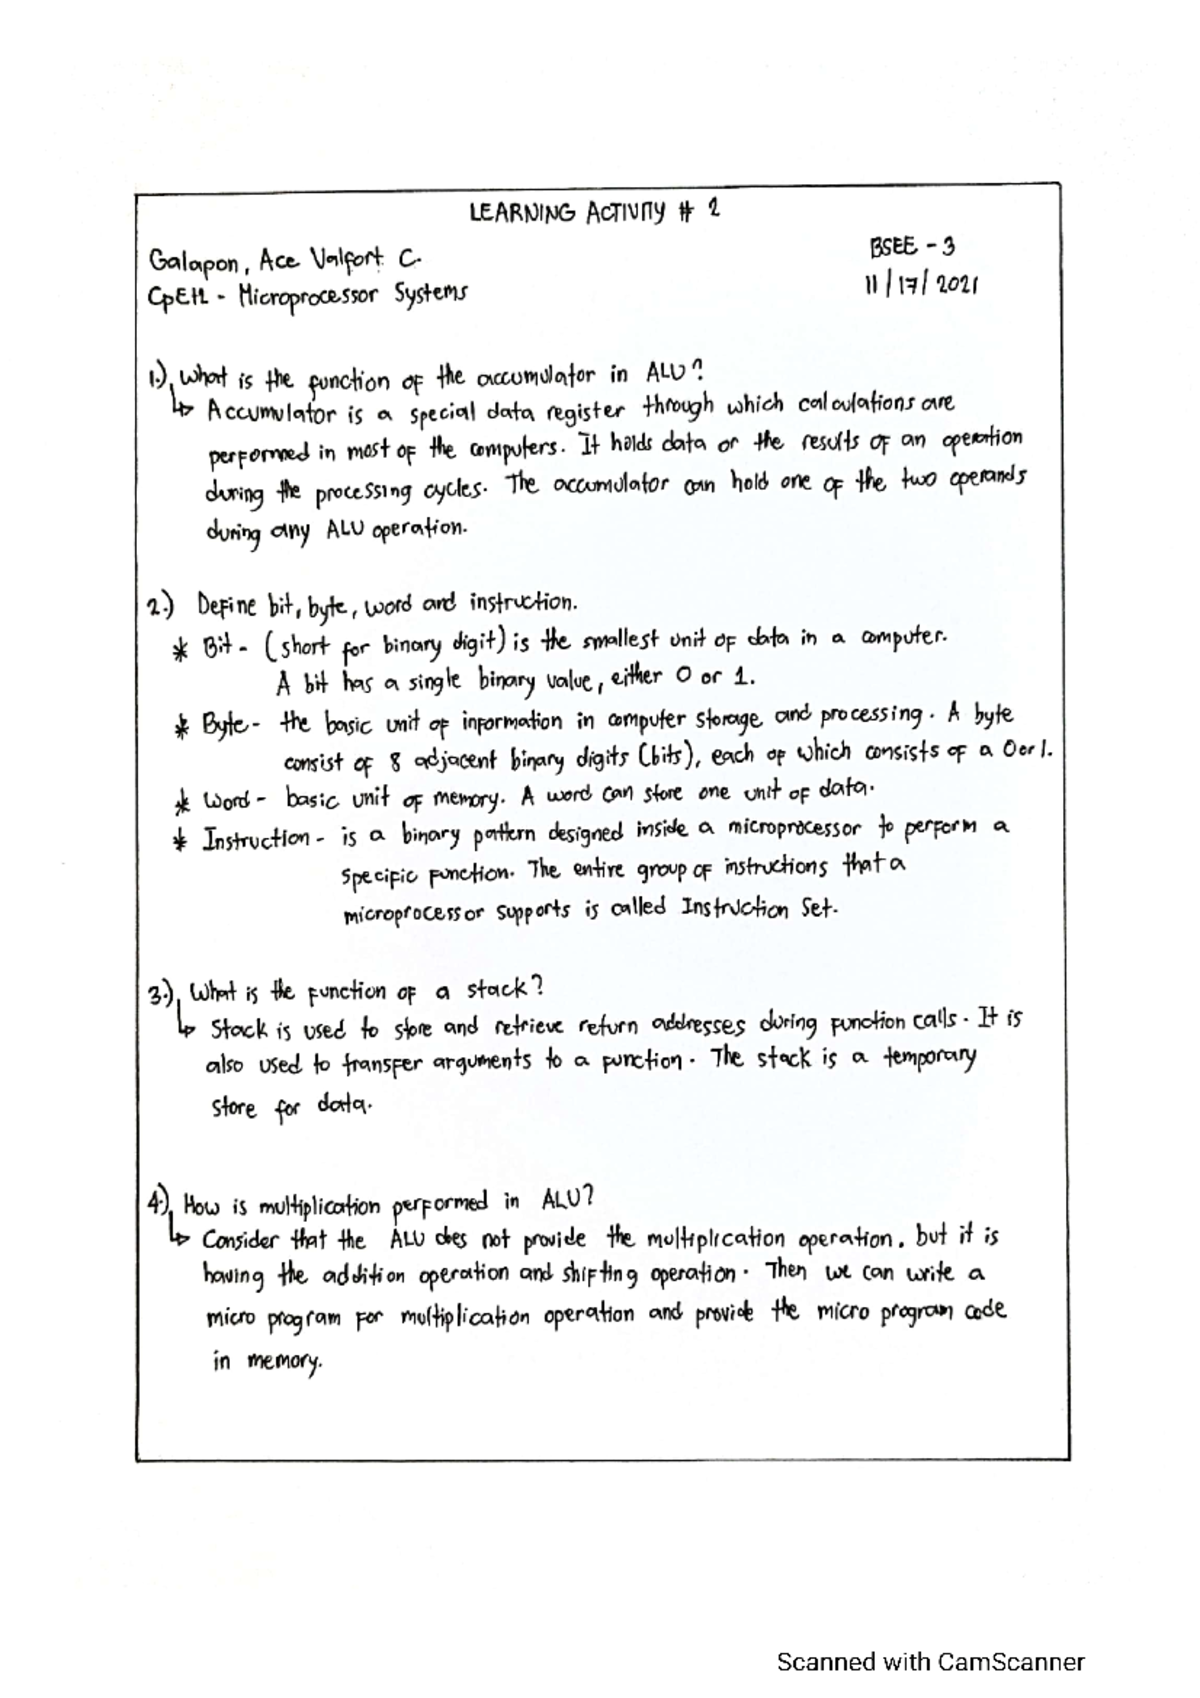 LEARNING ACTIVITY # 2
Galapon, Ace Valfort C.
BSEE - 3
CpE112 - Microprocessor Systems
11/17/2021
1.) What is the function of the accumulator in ALU?
↳ Accumulator is a special data register through which calculations are
performed in most of the computers. It holds data or the results of an operation
during the processing cycles. The accumulator can hold one of the two operands
during any ALU operation.
2.) Define bit, byte, word and instruction.
* Bit - (short for binary digit) is the smallest unit of data in a computer.
A bit has a single binary value, either 0 or 1.
* Byte - the basic unit of information in computer storage and processing. A byte
consist of 8 adjacent binary digits (bits), each of which consists of a 0 or 1.
* Word - basic unit of memory. A word can store one unit of data.
* Instruction - is a binary pattern designed inside a microprocessor to perform a
specific function. The entire group of instructions that a
microprocessor supports is called Instruction Set.
3.) What is the function of a stack?
↳ Stack is used to store and retrieve return addresses during function calls. It is
also used to transfer arguments to a function. The stack is a temporary
store for data.
4.) How is multiplication performed in ALU?
↳ Consider that the ALU does not provide the multiplication operation, but it is
having the addition operation and shifting operation. Then we can write a
micro program for multiplication operation and provide the micro program code
in memory.
Scanned with CamScanner